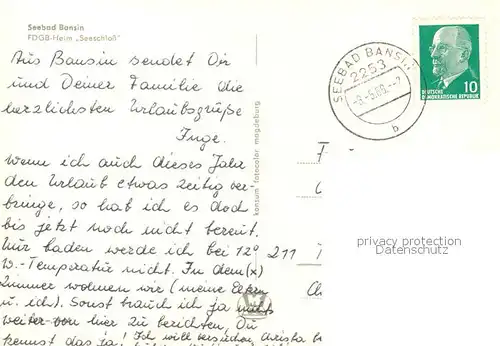 Seebad Bansin
FDGB-Heim „Seeschloß"
Aus Bansin sendet Dir
und Deiner Familie die
herzlichsten Urlaubsgrüße
Inge.
Wenn ich auch dieses Jahr
den Urlaub etwas zeitig ver-
bringe, so hab ich es doch
bis jetzt noch nicht bereut.
Nur baden werde ich bei 12°
W.-Temperatur nicht. In dem (x)
Zimmer wohnen wir (meine Eltern
u. ich). Sonst brauch ich ja nichts
weiter von hier zu berichten, Du
kennst das ja! Ich will versuchen, Christa
211
konsum fotocolor magdeburg
SEEBAD BANSIN
2253
b
10
DEUTSCHE
DEMOKRATISCHE REPUBLIK
privacy protection
Datenschutz